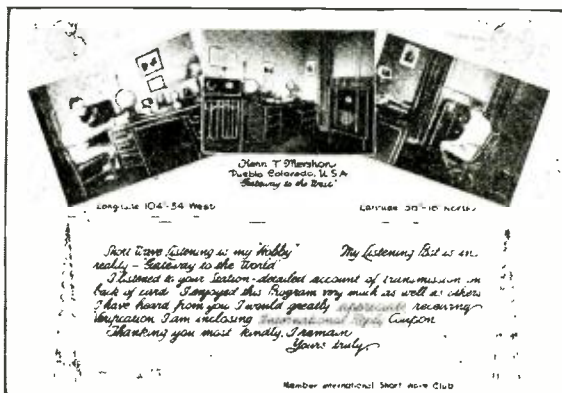 Kenn T Mershon
Pueblo Colorado, U.S.A
"Gateway to the West"
Longitude 104-34 West
Latitude North
Short Wave Listening is my "Hobby" My Listening Post is in
reality - "Gateway to the World"
I listened to your Station - detailed account of transmission on
back of card I enjoyed this Program very much as well as others
I have heard from you I would greatly appreciate receiving
Verification I am inclosing International Reply Coupon
Thanking you most kindly, I remain
Yours truly,
Member International Short Wave Club